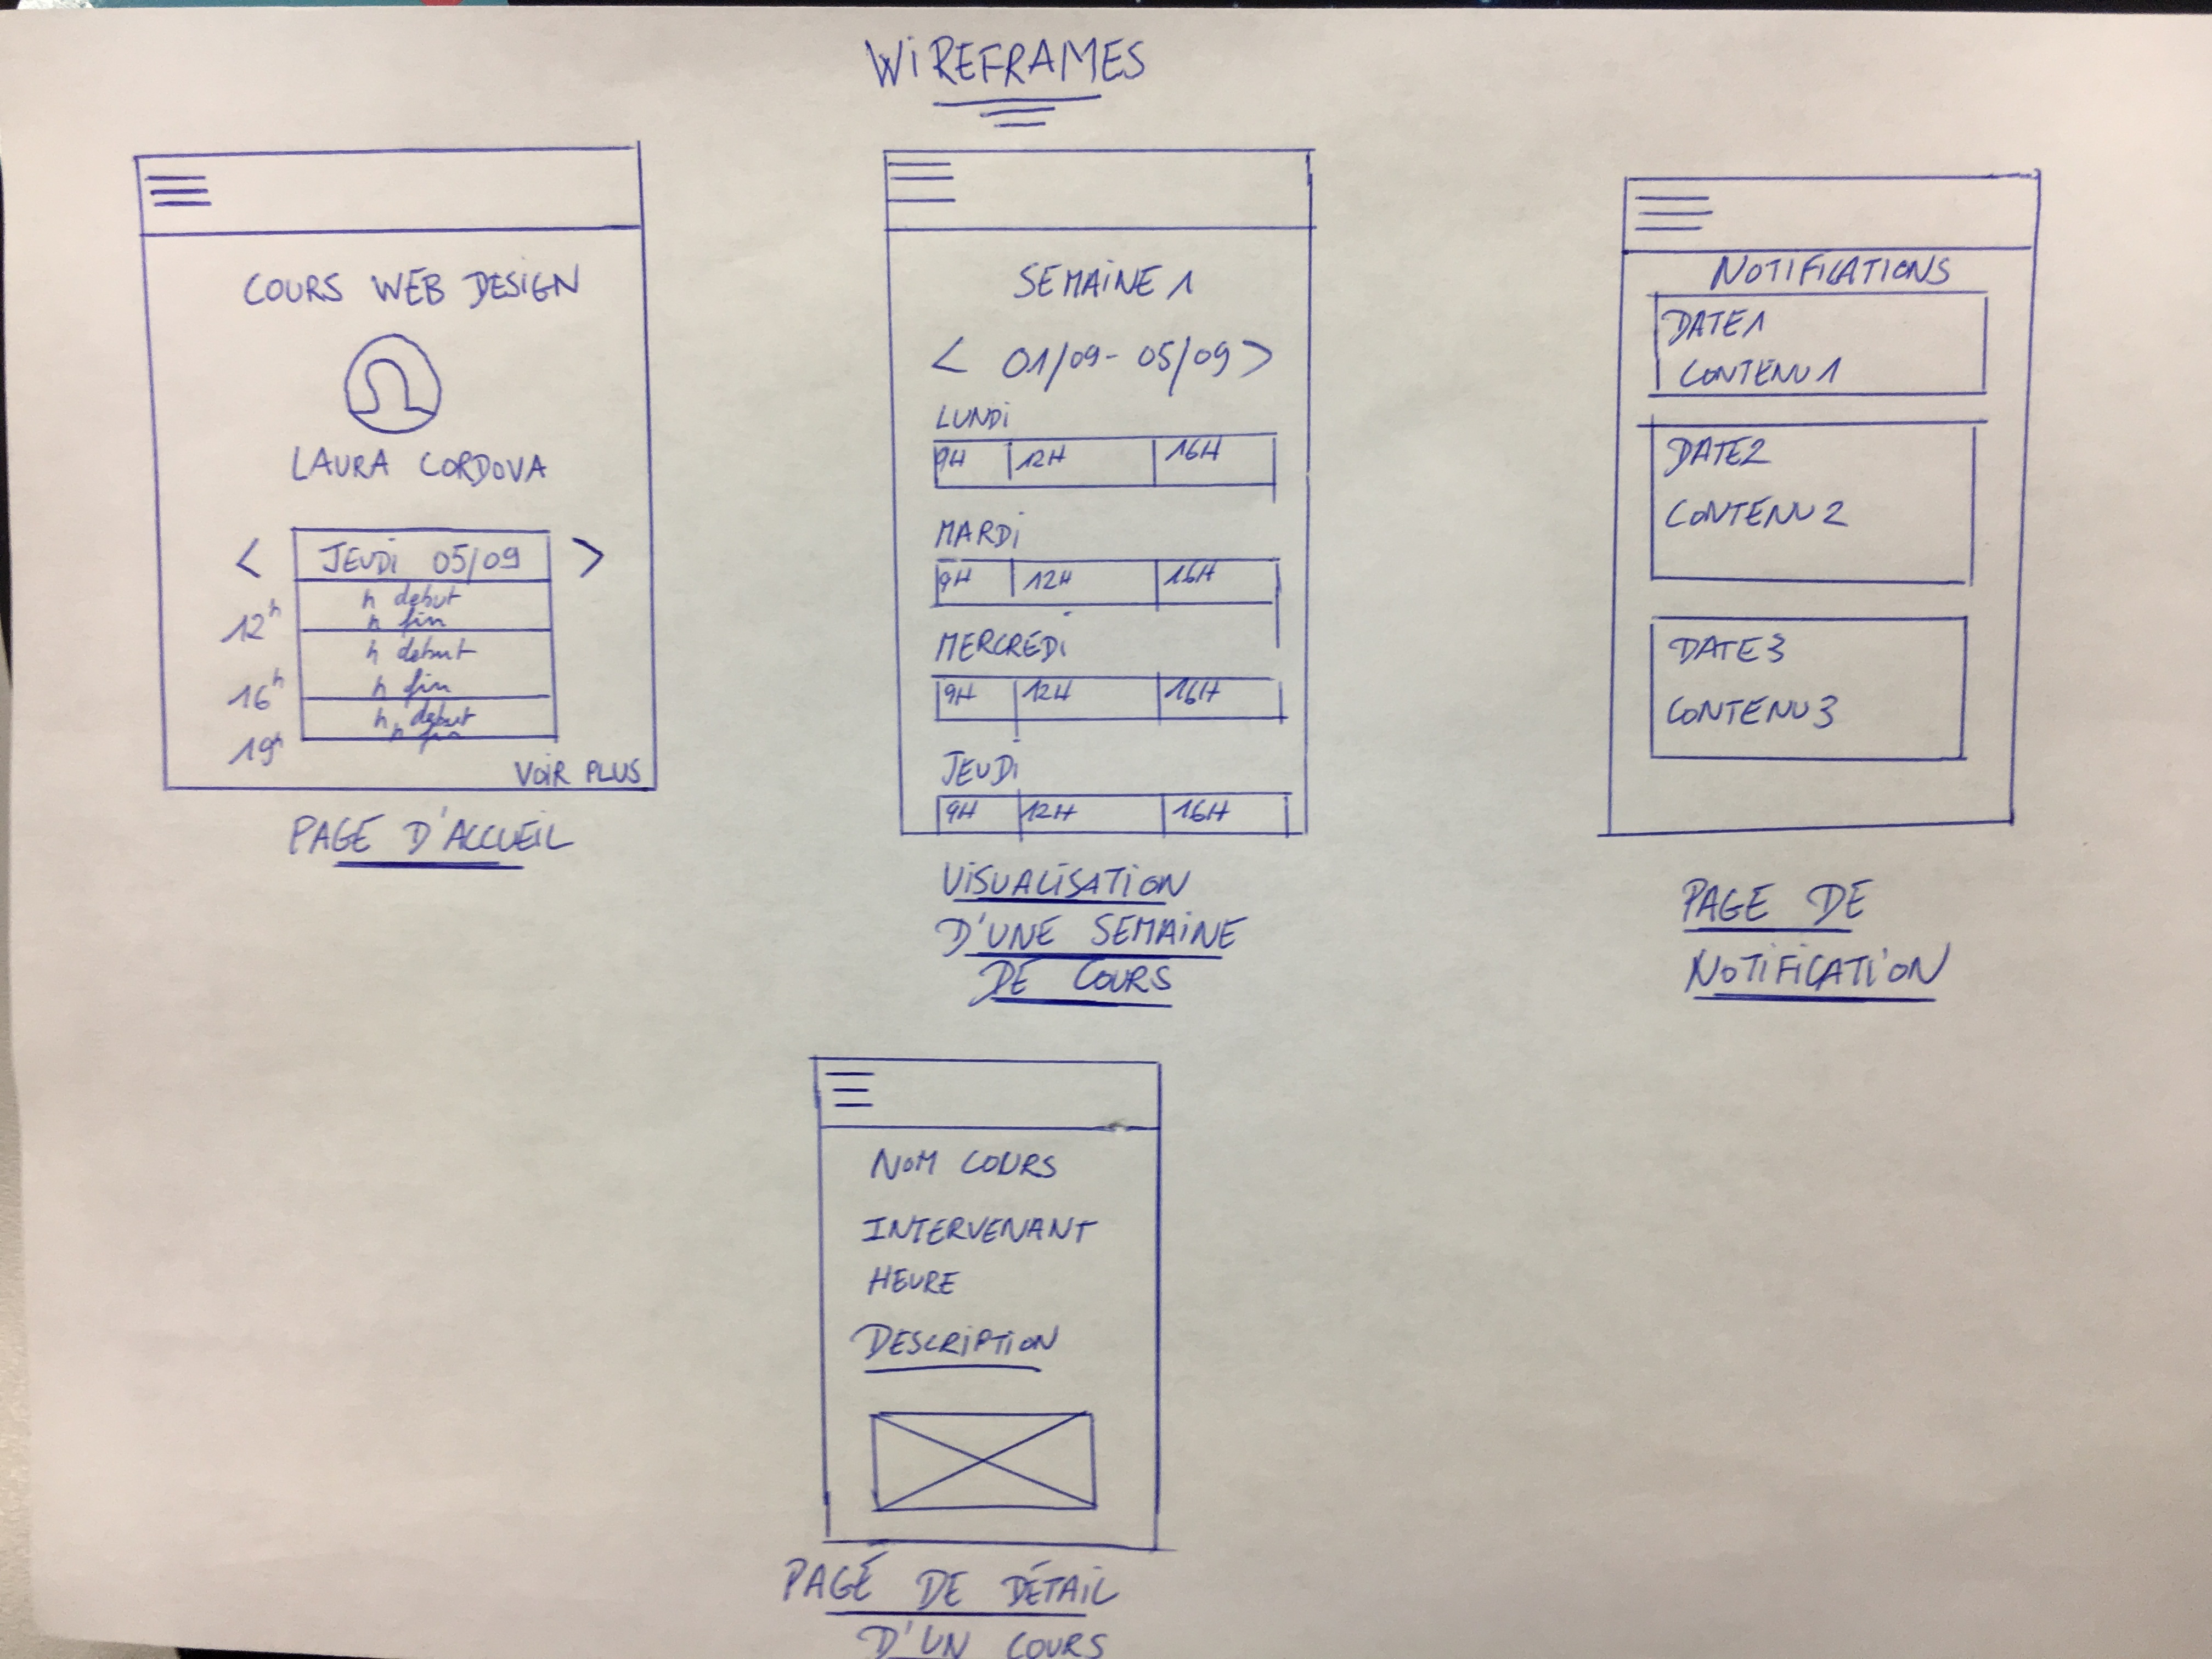 WIREFRAMES
COURS WEB DESIGN
LAURA CORDOVA
< JEUDI 05/09 >
h debut
12h
h fin
h debut
16h
h fin
h debut
h fin
19h
VOIR PLUS
PAGE D'ACCUEIL
SEMAINE 1
< 01/09 - 05/09 >
LUNDI
9H 12H 16H
MARDI
9H 12H 16H
MERCREDI
9H 12H 16H
JEUDI
9H 12H 16H
VISUALISATION
D'UNE SEMAINE
DE COURS
NOTIFICATIONS
DATE1
CONTENU1
DATE2
CONTENU2
DATE3
CONTENU3
PAGE DE
NOTIFICATION
NOM COURS
INTERVENANT
HEURE
DESCRIPTION
PAGE DE DÉTAIL
D'UN COURS